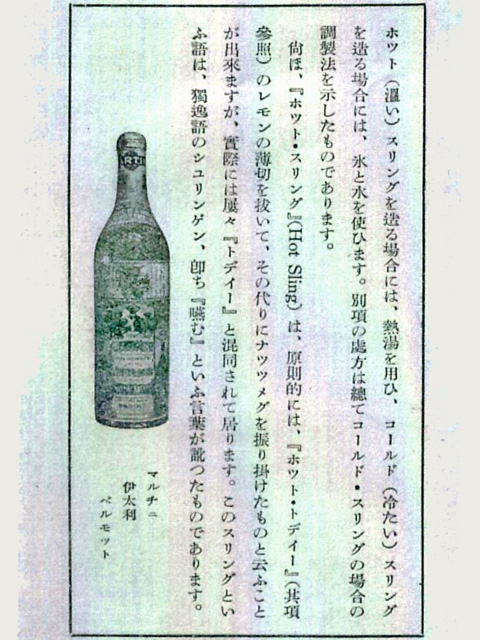 ホツト（溫い）スリングを造る場合には、熱湯を用ひ、コールド（冷たい）スリング
を造る場合には、氷と水を使ひます。別項の處方は總てコールド・スリングの場合の
調製法を示したものであります。
尙ほ、『ホツト・スリング』（Hot Sling）は、原則的には、『ホツト・トデイー』（其項
參照）のレモンの薄切を抜いて、その代りにナツツメグを振り掛けたものと云ふこと
が出來ますが、實際には屢々『トデイー』と混同されて居ります。このスリングとい
ふ語は、獨逸語のシュリンゲン、卽ち『嚥む』といふ言葉が訛つたものであります。
マルチニ
伊太利
ベルモット